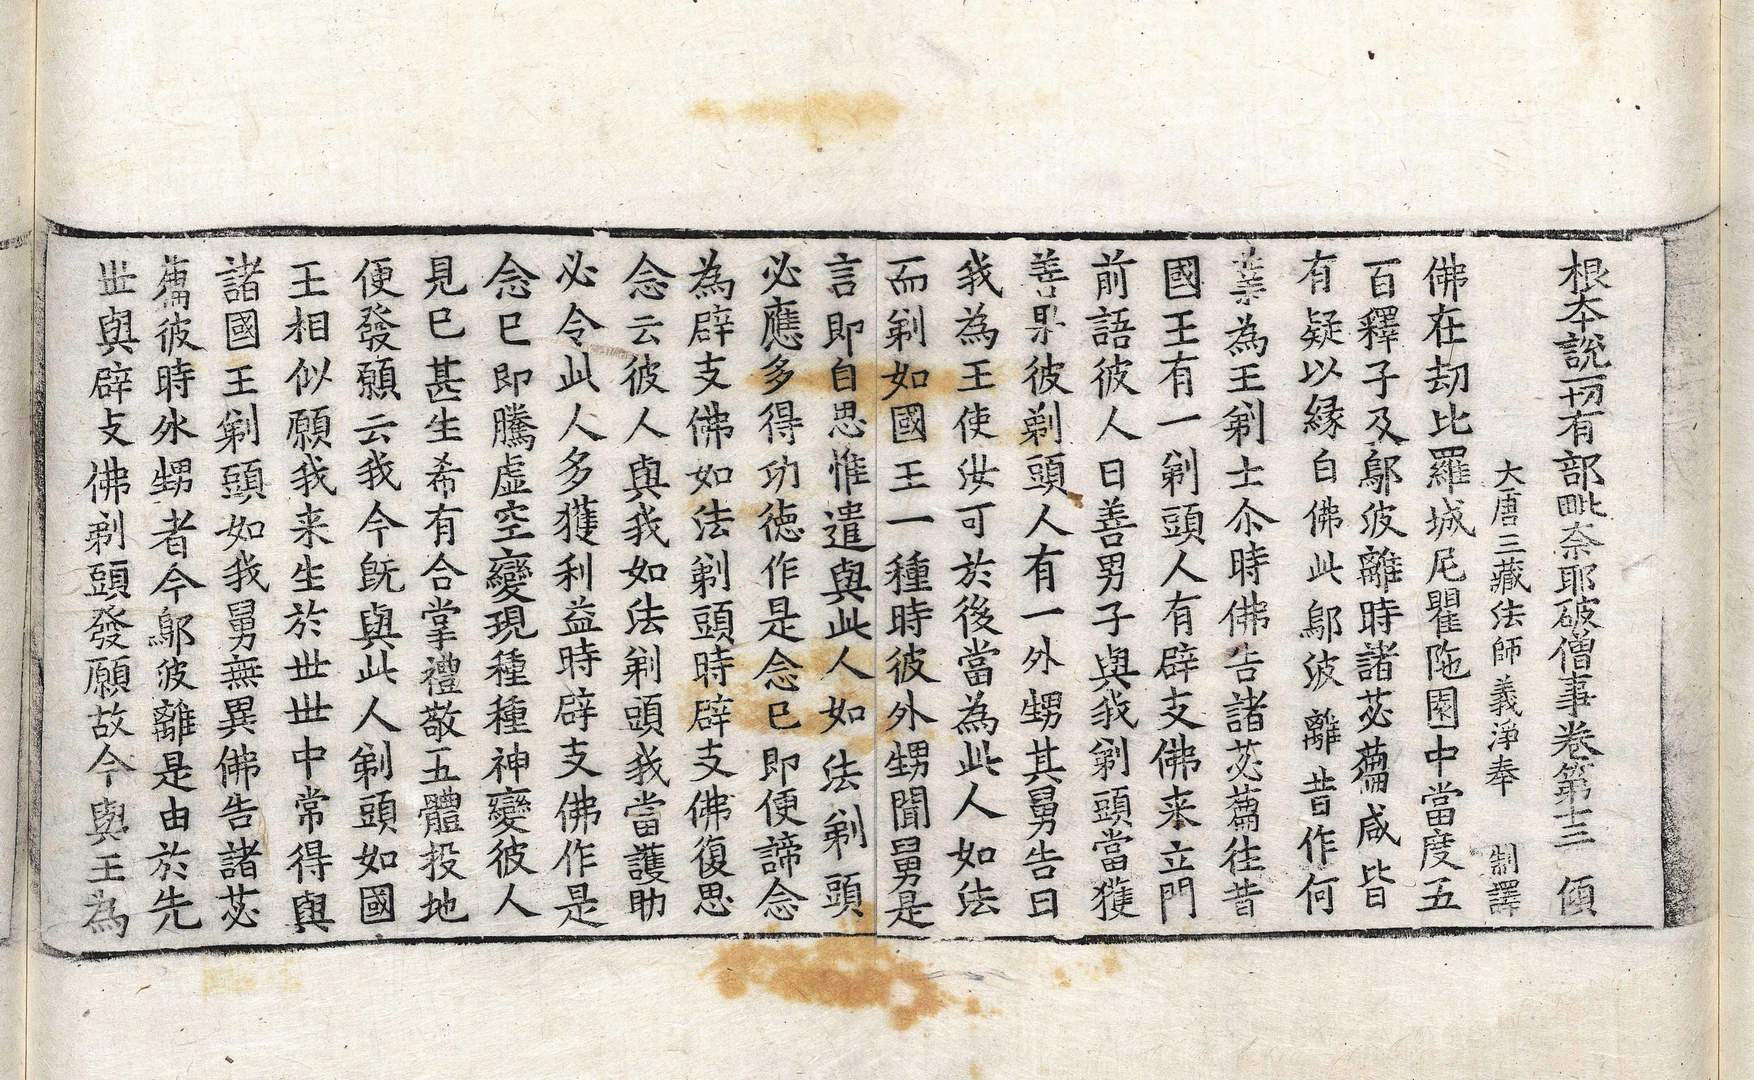 根本說一切有部毗奈耶破僧事卷第十三　傾
大唐三藏法師義淨奉　制譯
佛在劫比羅城尼瞿陁園中當度五
百釋子及鄔波離時諸苾蒭咸皆
有疑以縁白佛此鄔波離昔作何
業為王剃士尒時佛告諸苾蒭徃昔
國王有一剃頭人有辟支佛来立門
前語彼人曰善男子與我剃頭當獲
善果彼剃頭人有一外甥其舅告曰
我為王使汝可於後當為此人如法
而剃如國王一種時彼外甥聞舅是
言即自思惟遣與此人如法剃頭
必應多得功徳作是念已即便諦念
為辟支佛如法剃頭時辟支佛復思
念云彼人與我如法剃頭我當護助
必令此人多獲利益時辟支佛作是
念已即騰虛空變現種種神變彼人
見已甚生希有合掌禮敬五體投地
便發願云我今旣與此人剃頭如國
王相似願我来生於丗丗中常得與
諸國王剃頭如我舅無異佛告諸苾
蒭彼時外甥者今鄔波離是由於先
丗與辟支佛剃頭發願故今與王為